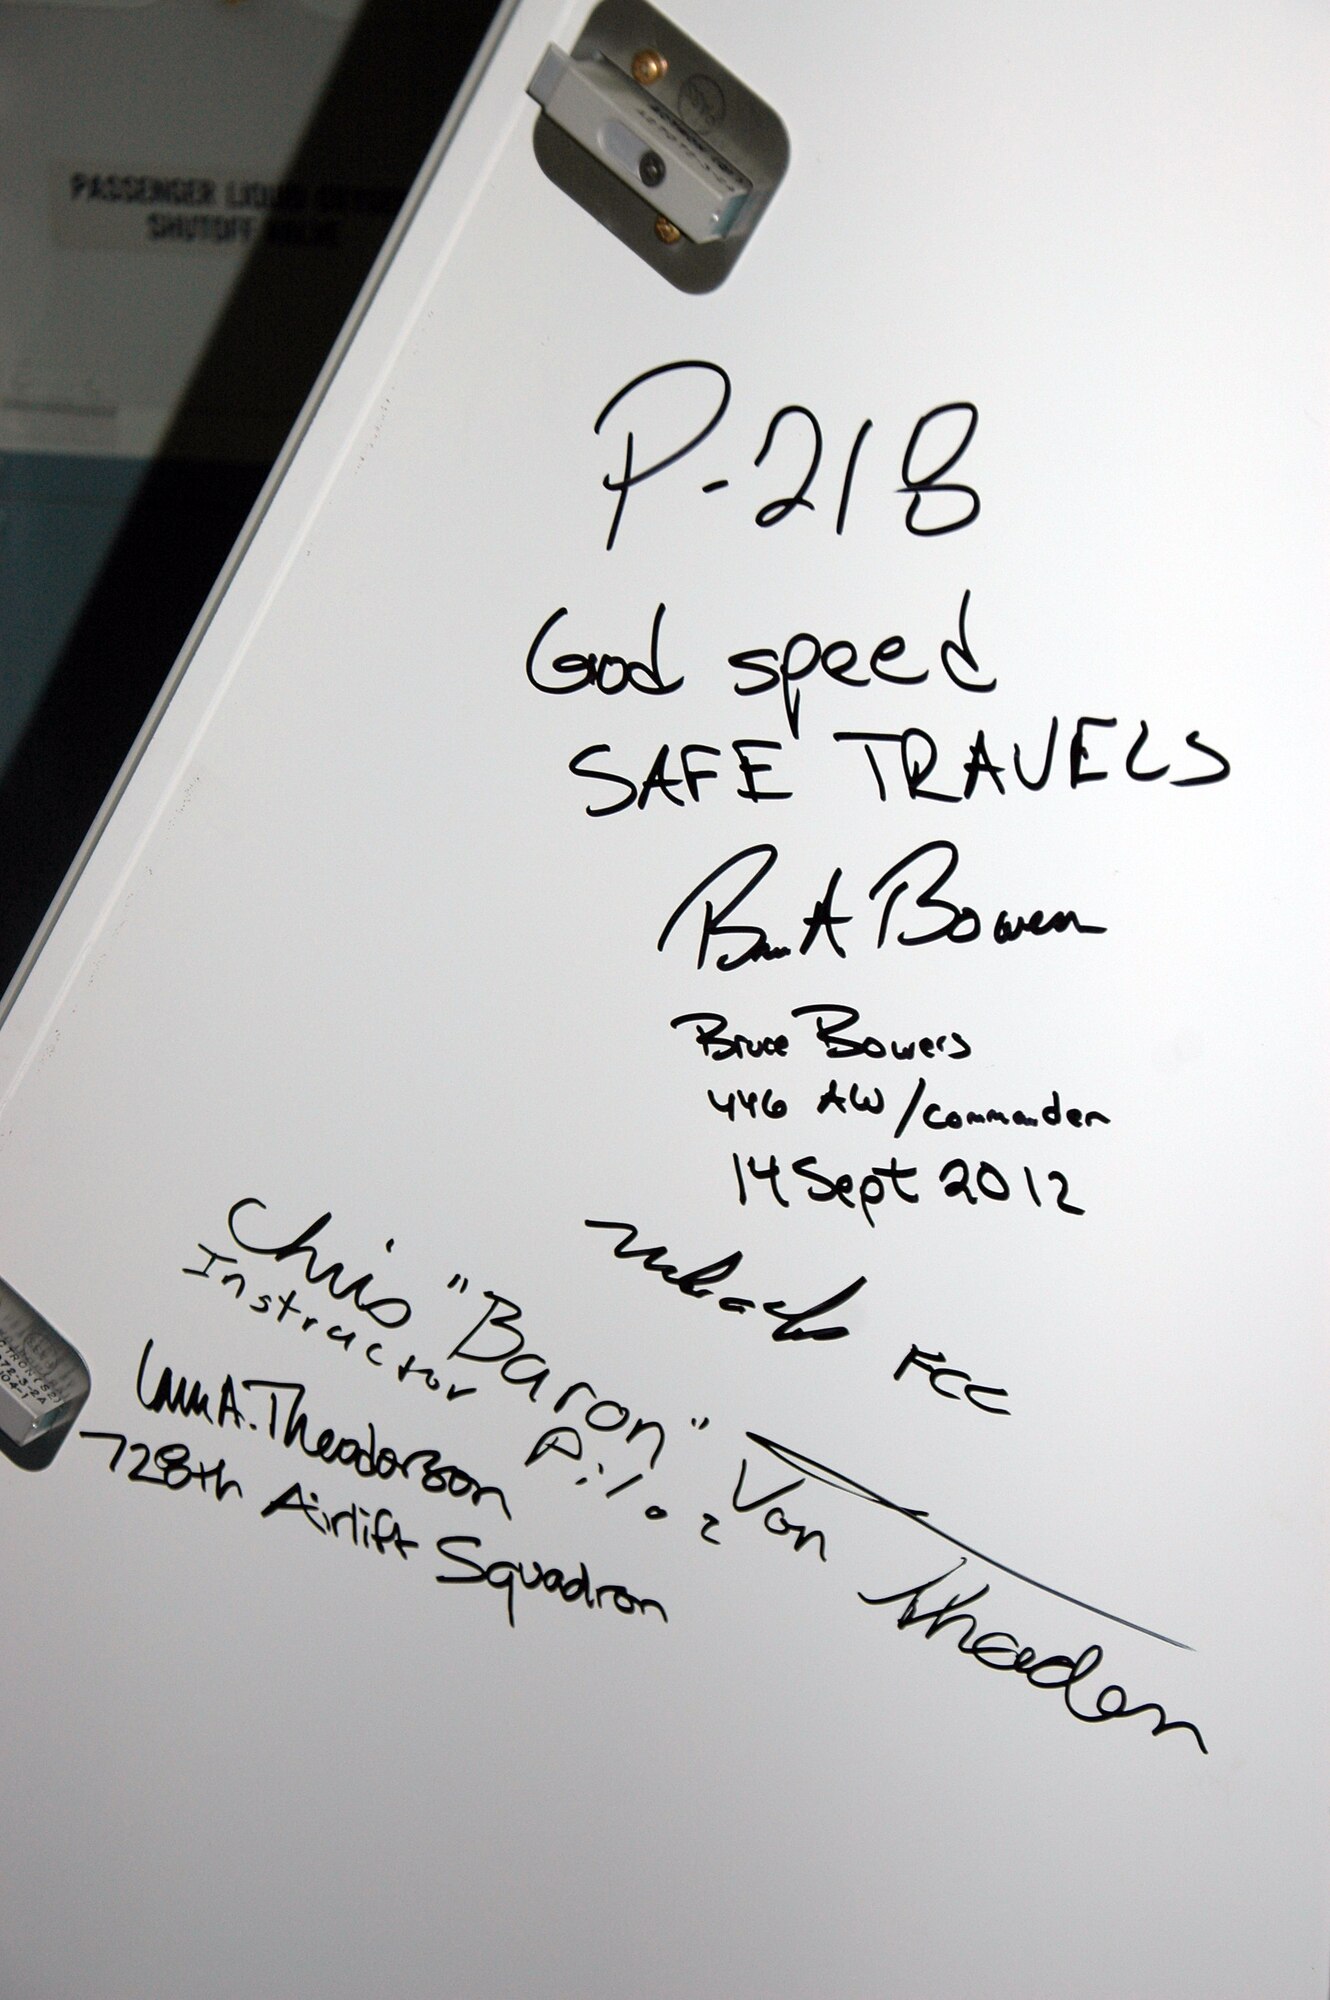 PASSENGER
SHUTOFF
P-218
God speed
SAFE TRAVELS
A Bowen
Bruce Bowers
446 AW/Commander
14 Sept 2012
FCC
Chris "Baron" Von Thaden
Instructor Pilot
A. Theodorson
728th Airlift Squadron